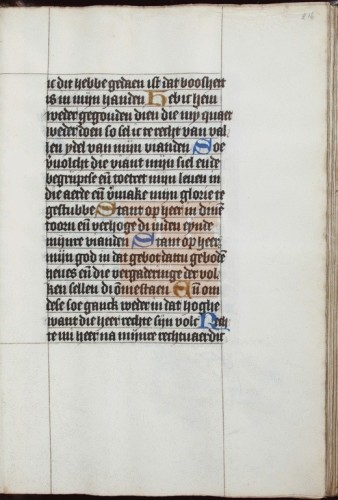 ic dit hebbe gedaen ist dat boosheit
is in mijn handen Heb ic hem
weder gegouden dien die my quaet
weder doen so sel ic te recht van val
len ydel van mijn vianden Soe
vͥuolcht die viant mijn siel ende
begrijptse eñ toetret mijn leuen in
die aerde eñ vͥmake mijn glorie te
gestubbe Stant op heer in dinē
toorn eñ verhoge di in den eynde
mijnre vianden Stant op heer
mijn god in dat gebot dattu gebodē
heues eñ die vergaderinge der vol
ken sellen di ōmestaen Eñ om
dese soe ganck weder in dat hoghe
want die heer rechte sijn volc Rech
te mi heer na mijnre rechtuaerdic